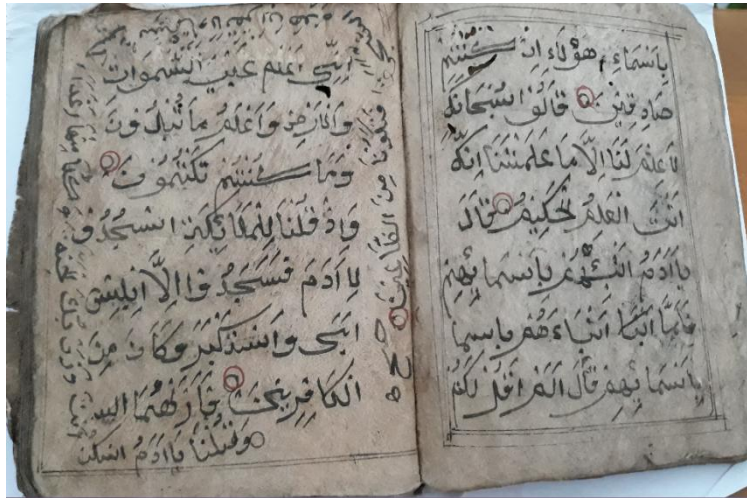 بِاَسْمَاءِ هؤُلَاءِ اِنْ كُنْتُمْ
صَادِقِينَ قَالُوا سُبْحَانَكَ
لَا عِلْمَ لَنَا اِلَّا مَا عَلَّمْتَنَا اِنَّكَ
اَنْتَ الْعَلِيمُ الْحَكِيمُ قَالَ
يَا اَدَمُ اَنْبِئْهُمْ بِاَسْمَائِهِمْ
فَلَمَّا اَنْبَا اَنْبَاءَهُمْ بِاسما
بِاَسْمَائِهِمْ قَالَ اَلَمْ اَقُلْ لَكُمْ
اِنِّى اَعْلَمُ غَيْبَ السَّمَوَاتِ
وَالْاَرْضِ وَاَعْلَمُ مَا تُبْدُونَ
وَمَا كُنْتُمْ تَكْتُمُونَ
وَاِذْ قُلْنَا لِلْمَلَائِكَةِ اسْجُدُوا
لِاَدَمَ فَسَجَدُوا اِلَّا اِبْلِيسَ
اَبَى وَاسْتَكْبَرَ وَكَانَ مِنَ
الْكَافِرِينَ فَاَزَلَّهُمَا الش
وَقُلْنَا يَا اَدَمُ اسْكُنْ
اَنْتَ وَزَوْجُكَ الْجَنَّةَ وَكُلَا مِنْهَا رَغَدًا
فَتَكُونَا مِنَ الظَّالِمِينَ
صح